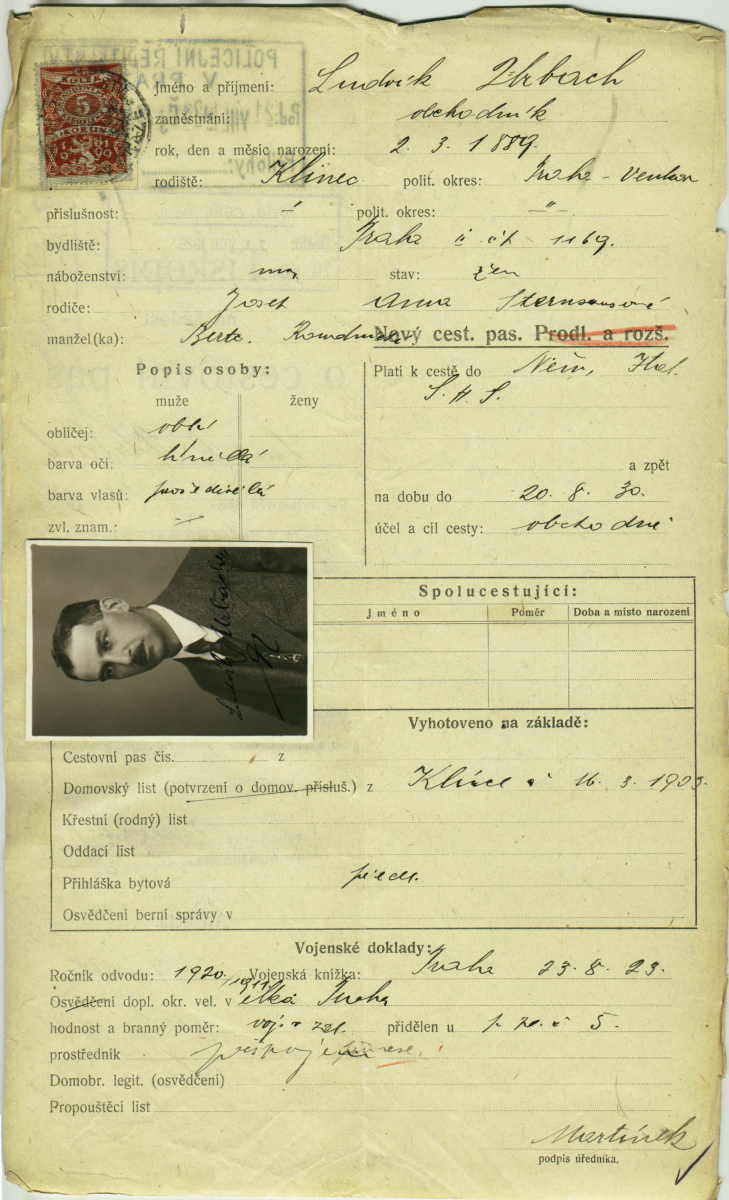 POLICEJNÍ ŘEDITELSTV
V PRAZE
KOLEK
5
KORUN
Jméno a příjmení: Ludvík
zaměstnání: obchodník
rok, den a měsíc narození: 2. 3. 1889.
rodiště: Klinec polit. okres: Praha - Venkov
příslušnost: " polit. okres: "
bydliště: Praha II čp. 1169.
náboženství: stav: žen
rodiče: Josef Anna
manžel(ka): Berta
Nový cest. pas. Prodl. a rozš.
Popis osoby:
muže ženy
obličej:
barva očí: hnědá
barva vlasů: prošedivělá
zvl. znam.: —
Platí k cestě do Něm, Ital.
S. H. S.
a zpět
na dobu do 20. 8. 30.
účel a cíl cesty: obchodně
Spolucestující:
Jméno Poměr Doba a místo narození
Vyhotoveno na základě:
Cestovní pas čís. z
Domovský list (potvrzení o domov. přísluš.) z 16. 3. 1903.
Křestní (rodný) list
Oddací list
Přihláška bytová předl.
Osvědčení berní správy v
Vojenské doklady:
Ročník odvodu: 1920. Vojenská knížka: Praha 23. 8. 23.
Osvědčení dopl. okr. vel. v Praha
hodnost a branný poměr: voj. v zál. přidělen u p. pl. č 5.
prostředník
Domobr. legit. (osvědčení)
Propouštěcí list
Martínek
podpis úředníka.